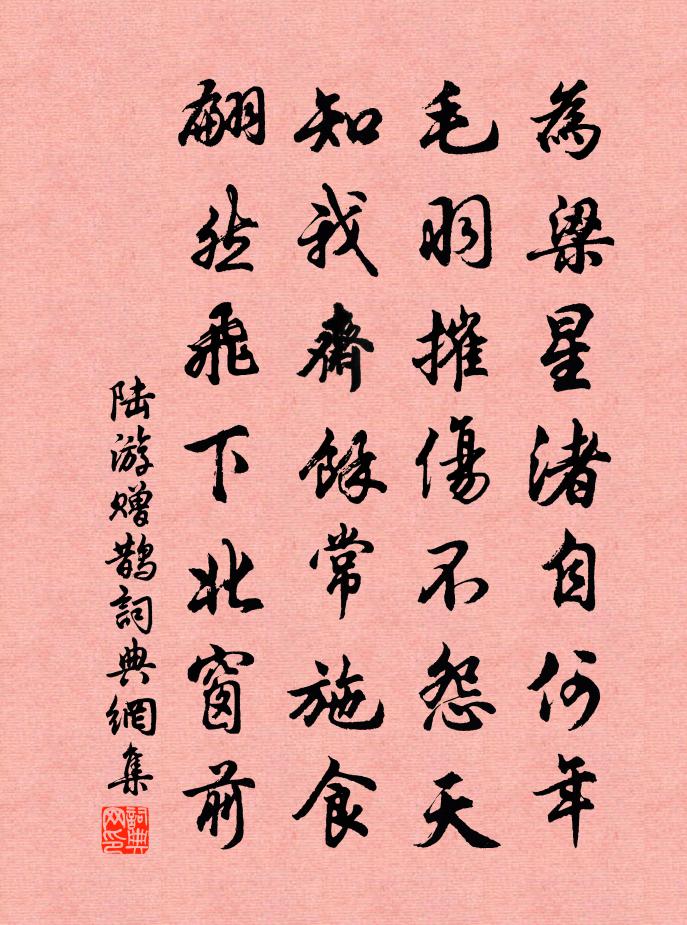 為梁星渚自何年
毛羽摧傷不怨天
知我齋餘常施食
翩然飛下北窗前
陆游赠鵲詞典網集
詞典
网印